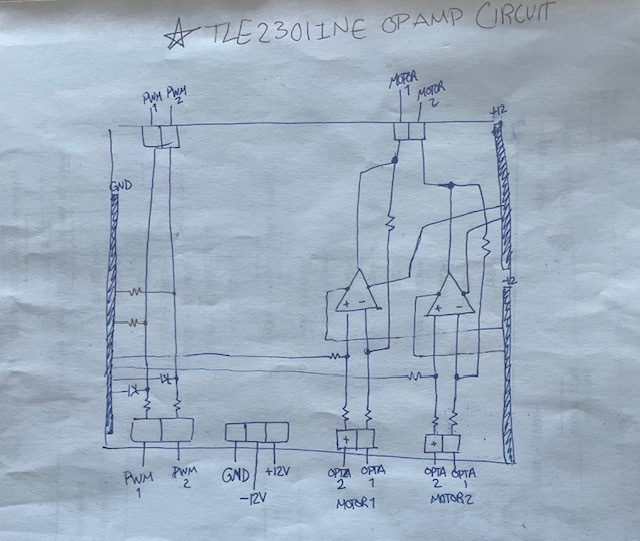 ☆ TLE2301INE OP AMP CIRCUIT
PWM 1 PWM 2
MOTOR 1 MOTOR 2
+12
GND
-12
+ - + -
+ +
PWM 1 PWM 2 GND -12V +12V OPTA 2 OPTA 1 OPTA 2 OPTA 1
MOTOR 1 MOTOR 2